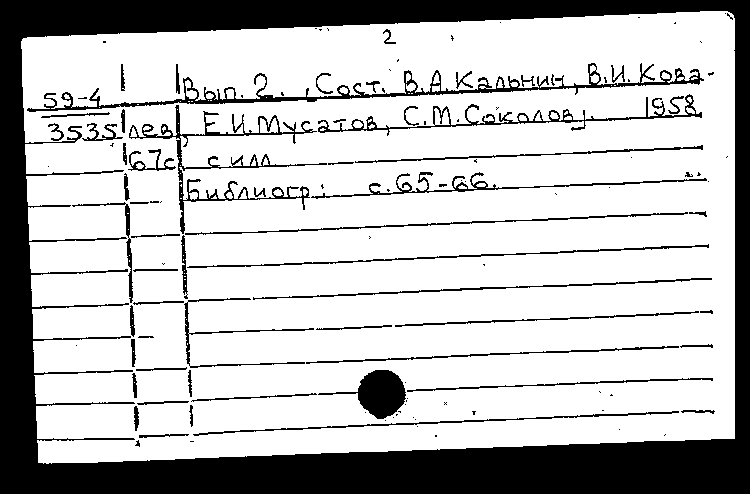 2
59-4 Вып. 2. , Сост. В.А. Кальнин, В.И. Кова-
3535 лев, Е.И. Мусатов, С.М. Соколов]. 1958
67с с илл
Библиогр: с. 65-66.